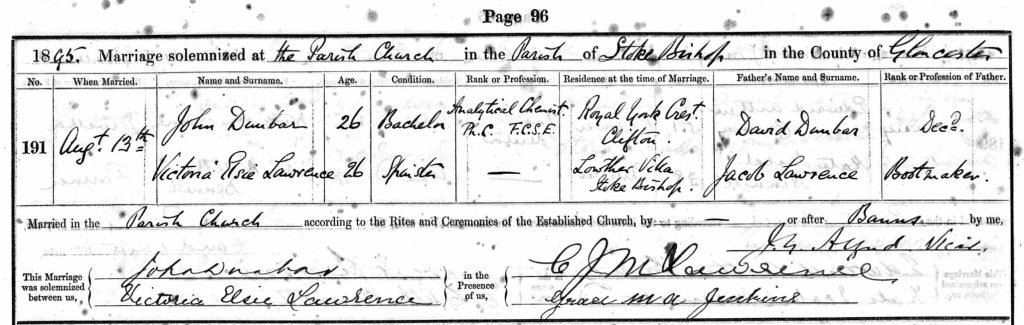 Page 96
1895. Marriage solemnized at the Parish Church in the Parish of Stoke Bishop in the County of Gloucester
No. When Married. Name and Surname. Age. Condition. Rank or Profession. Residence at the time of Marriage. Father's Name and Surname. Rank or Profession of Father.
191 Augt. 13th John Dunbar 26 Bachelor Analytical Chemist. Ph.C. F.C.S.E. Royal York Crest. Clifton. David Dunbar Decd.
Victoria Elsie Lawrence 26 Spinster — Lowther Villa Stoke Bishop. Jacob Lawrence Bootmaker.
Married in the Parish Church according to the Rites and Ceremonies of the Established Church, by — or after Banns by me,
Vicar.
This Marriage was solemnized between us, John Dunbar in the Presence of us, C J M Lawrence
Victoria Elsie Lawrence Grace M A Jenkins